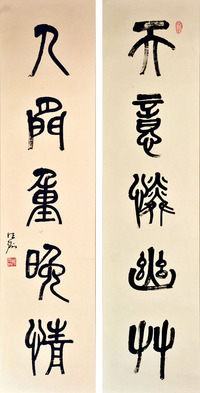 天意憐幽艸
人間重晚情